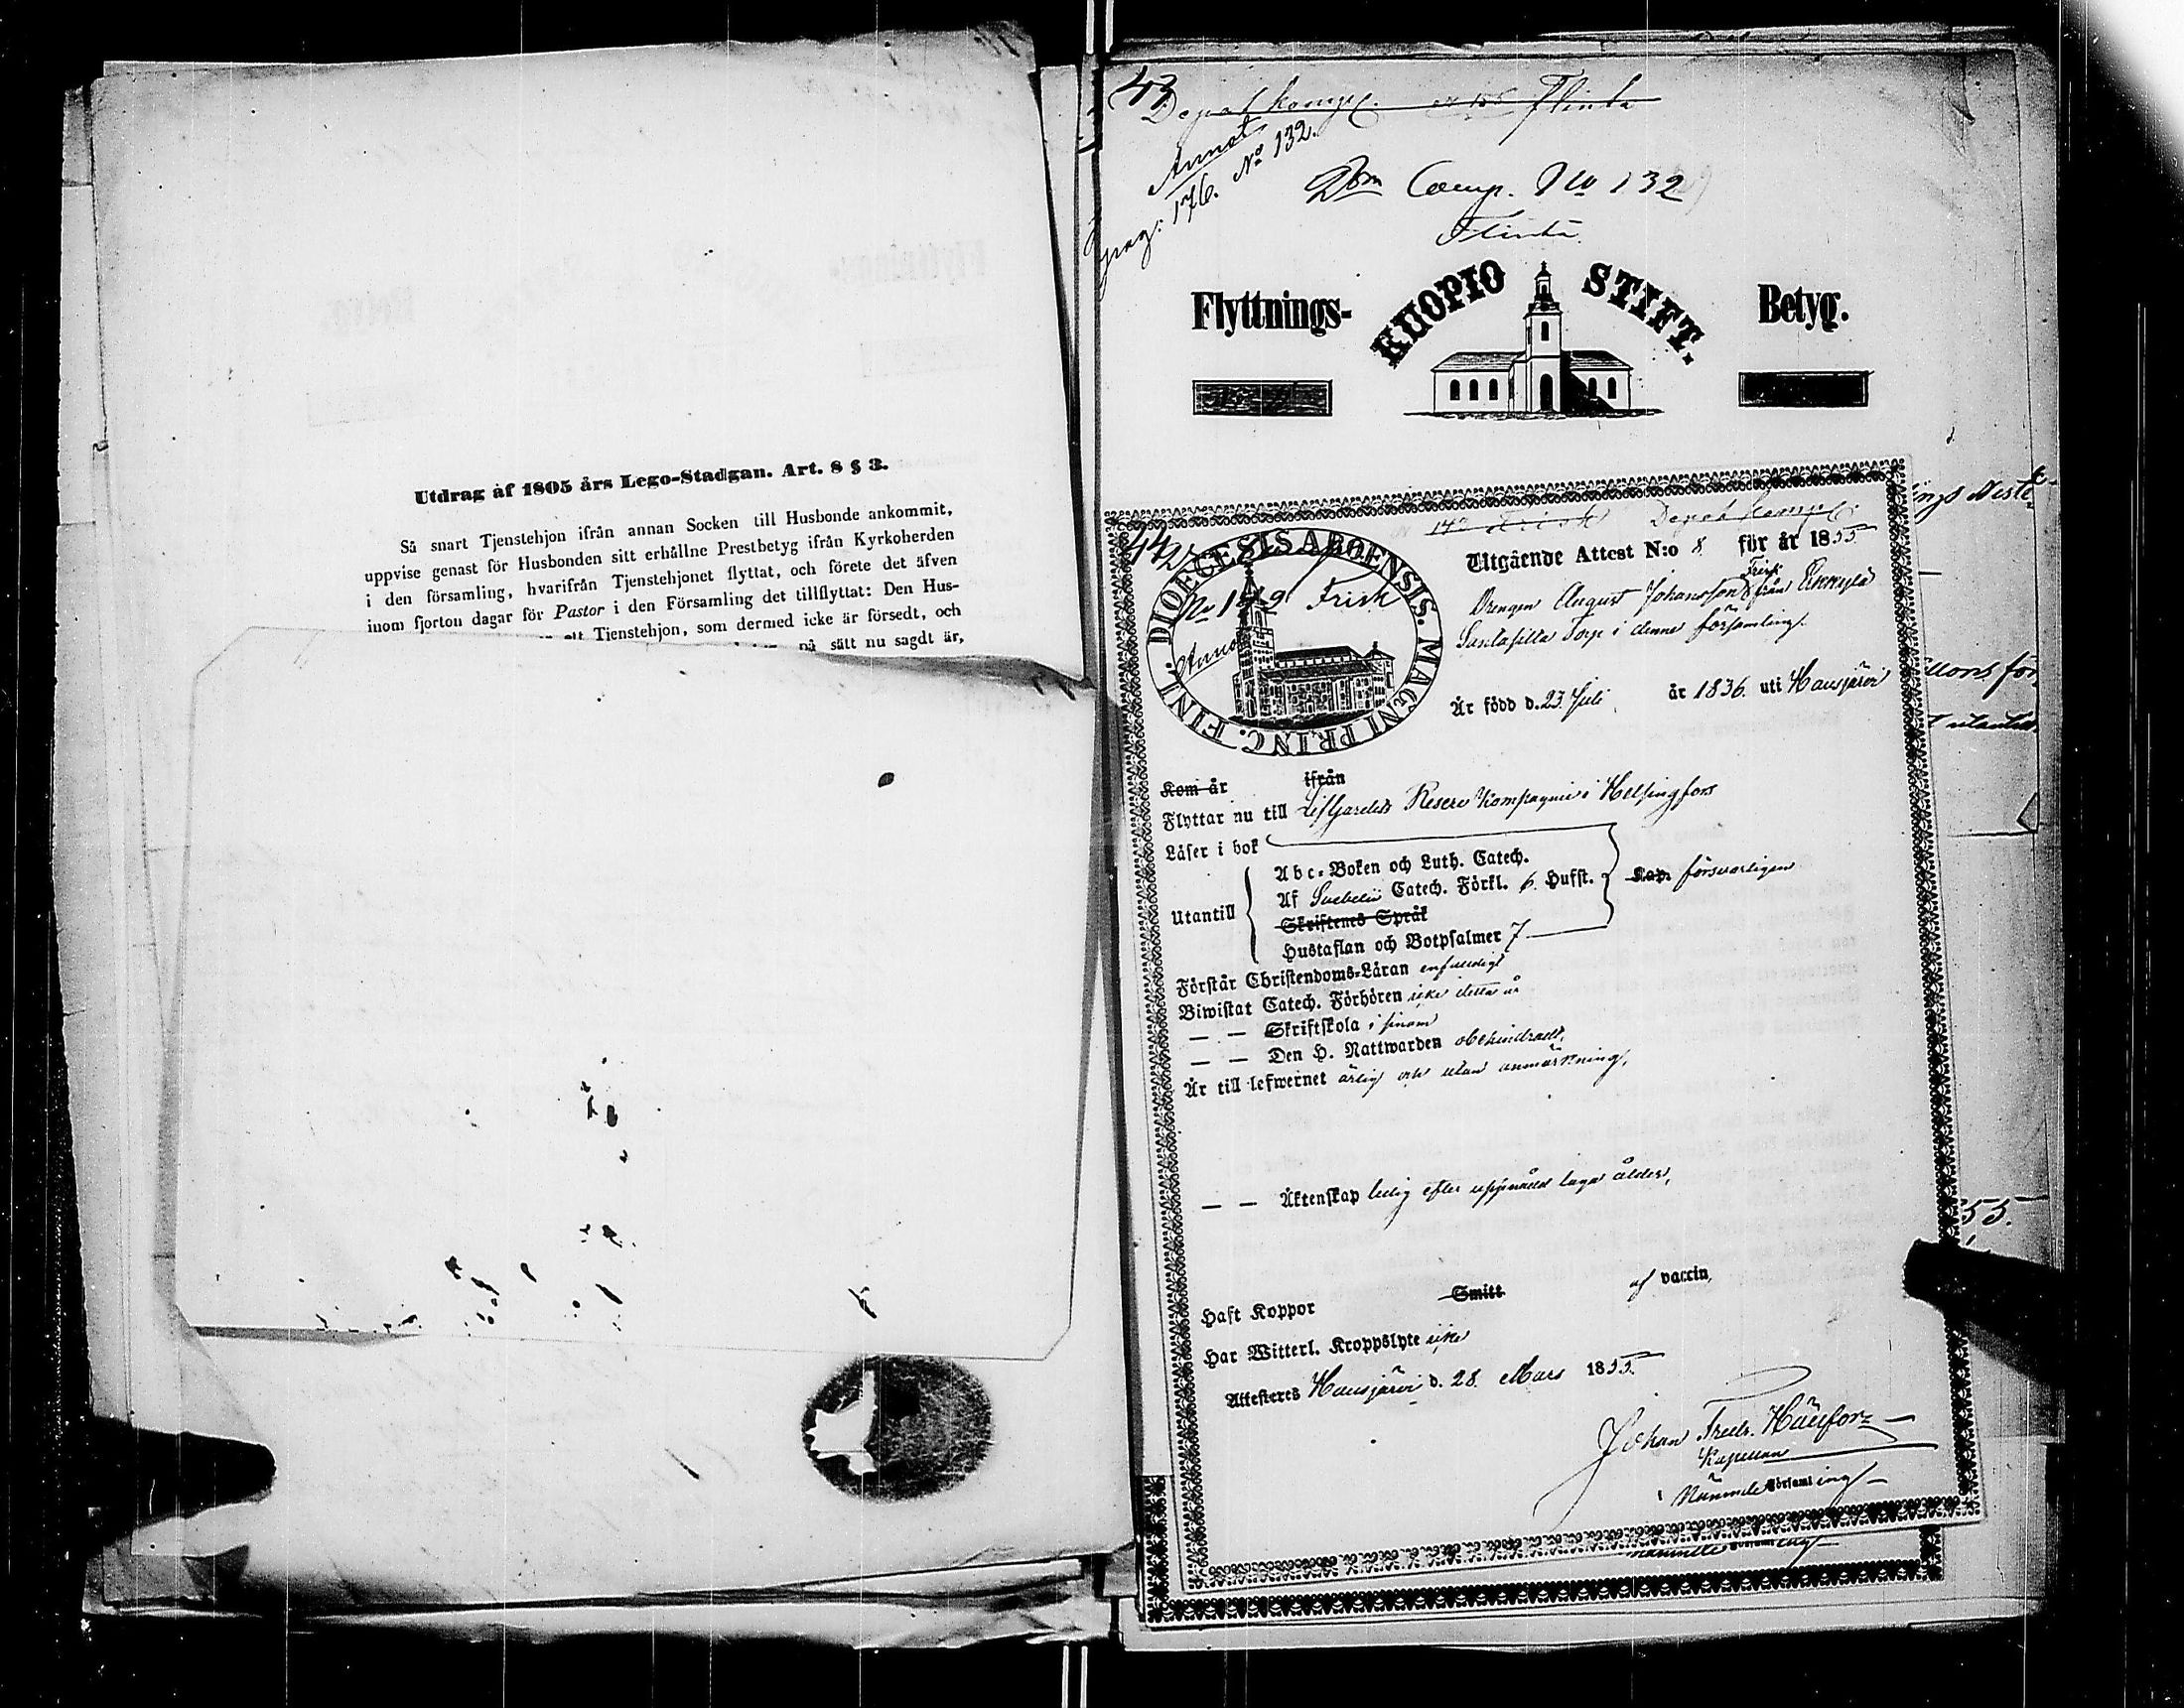 Utdrag af 1805 års Lego-Stadgan. Art. 8 § 3.
Så snart Tjenstehjon ifrån annan Socken till Husbonde ankommit,
uppvise genast för Husbonden sitt erhållne Prestbetyg ifrån Kyrkoherden
i den församling, hvarifrån Tjenstehjonet flyttat, och förete det äfven
inom fjorton dagar för Pastor i den Församling det tillflyttat: Den Hus-
ett Tjenstehjon, som dermed icke är försedt, och
på sätt nu sagdt är,
43
Depot komp. Flinta
Annot
pag: 176. No 132.
2dra Comp. No 132
Flinta
Flyttnings-
KUOPIO STIFT.
Betyg.
44
Depot komp.
DIOECESIS ABOENSIS. MAGNI PRINC. FINL.
Frisk
Annot
Utgående Attest N:o 8 för år 1855
Frisk
Drengen August Johansson från Erkkylä
Santasilta Torp i denna församling.
Är född d. 23 Juli år 1836. uti Hausjärvi
Kom år ifrån
Flyttar nu till Lifgardets Reserv Kompagnie i Helsingfors
Läser i bok
Abc-Boken och Luth. Catech.
Af Svebelii Catech. Förkl. 6. Hufst.
Kap. försvarligen
Utantill
Skriftenes Språk
Hustaflan och Botpsalmer 7
Förstår Christendoms-Läran enfaldigt
Biwistat Catech. Förhören icke detta år
— — Skriftskola i sinom
— — Den H. Nattwarden obehindradt,
Är till lefwernet ärlig och utan anmärkning,
— — Äktenskap ledig efter uppnådd laga ålder,
Haft Koppor Smitt af vaccin,
Har Witterl. Kroppslyte icke
Attesteras Hausjärvi d. 28. Mars 1855.
Johan Fredr.
Kapellan
i Nämnde Församling
55.